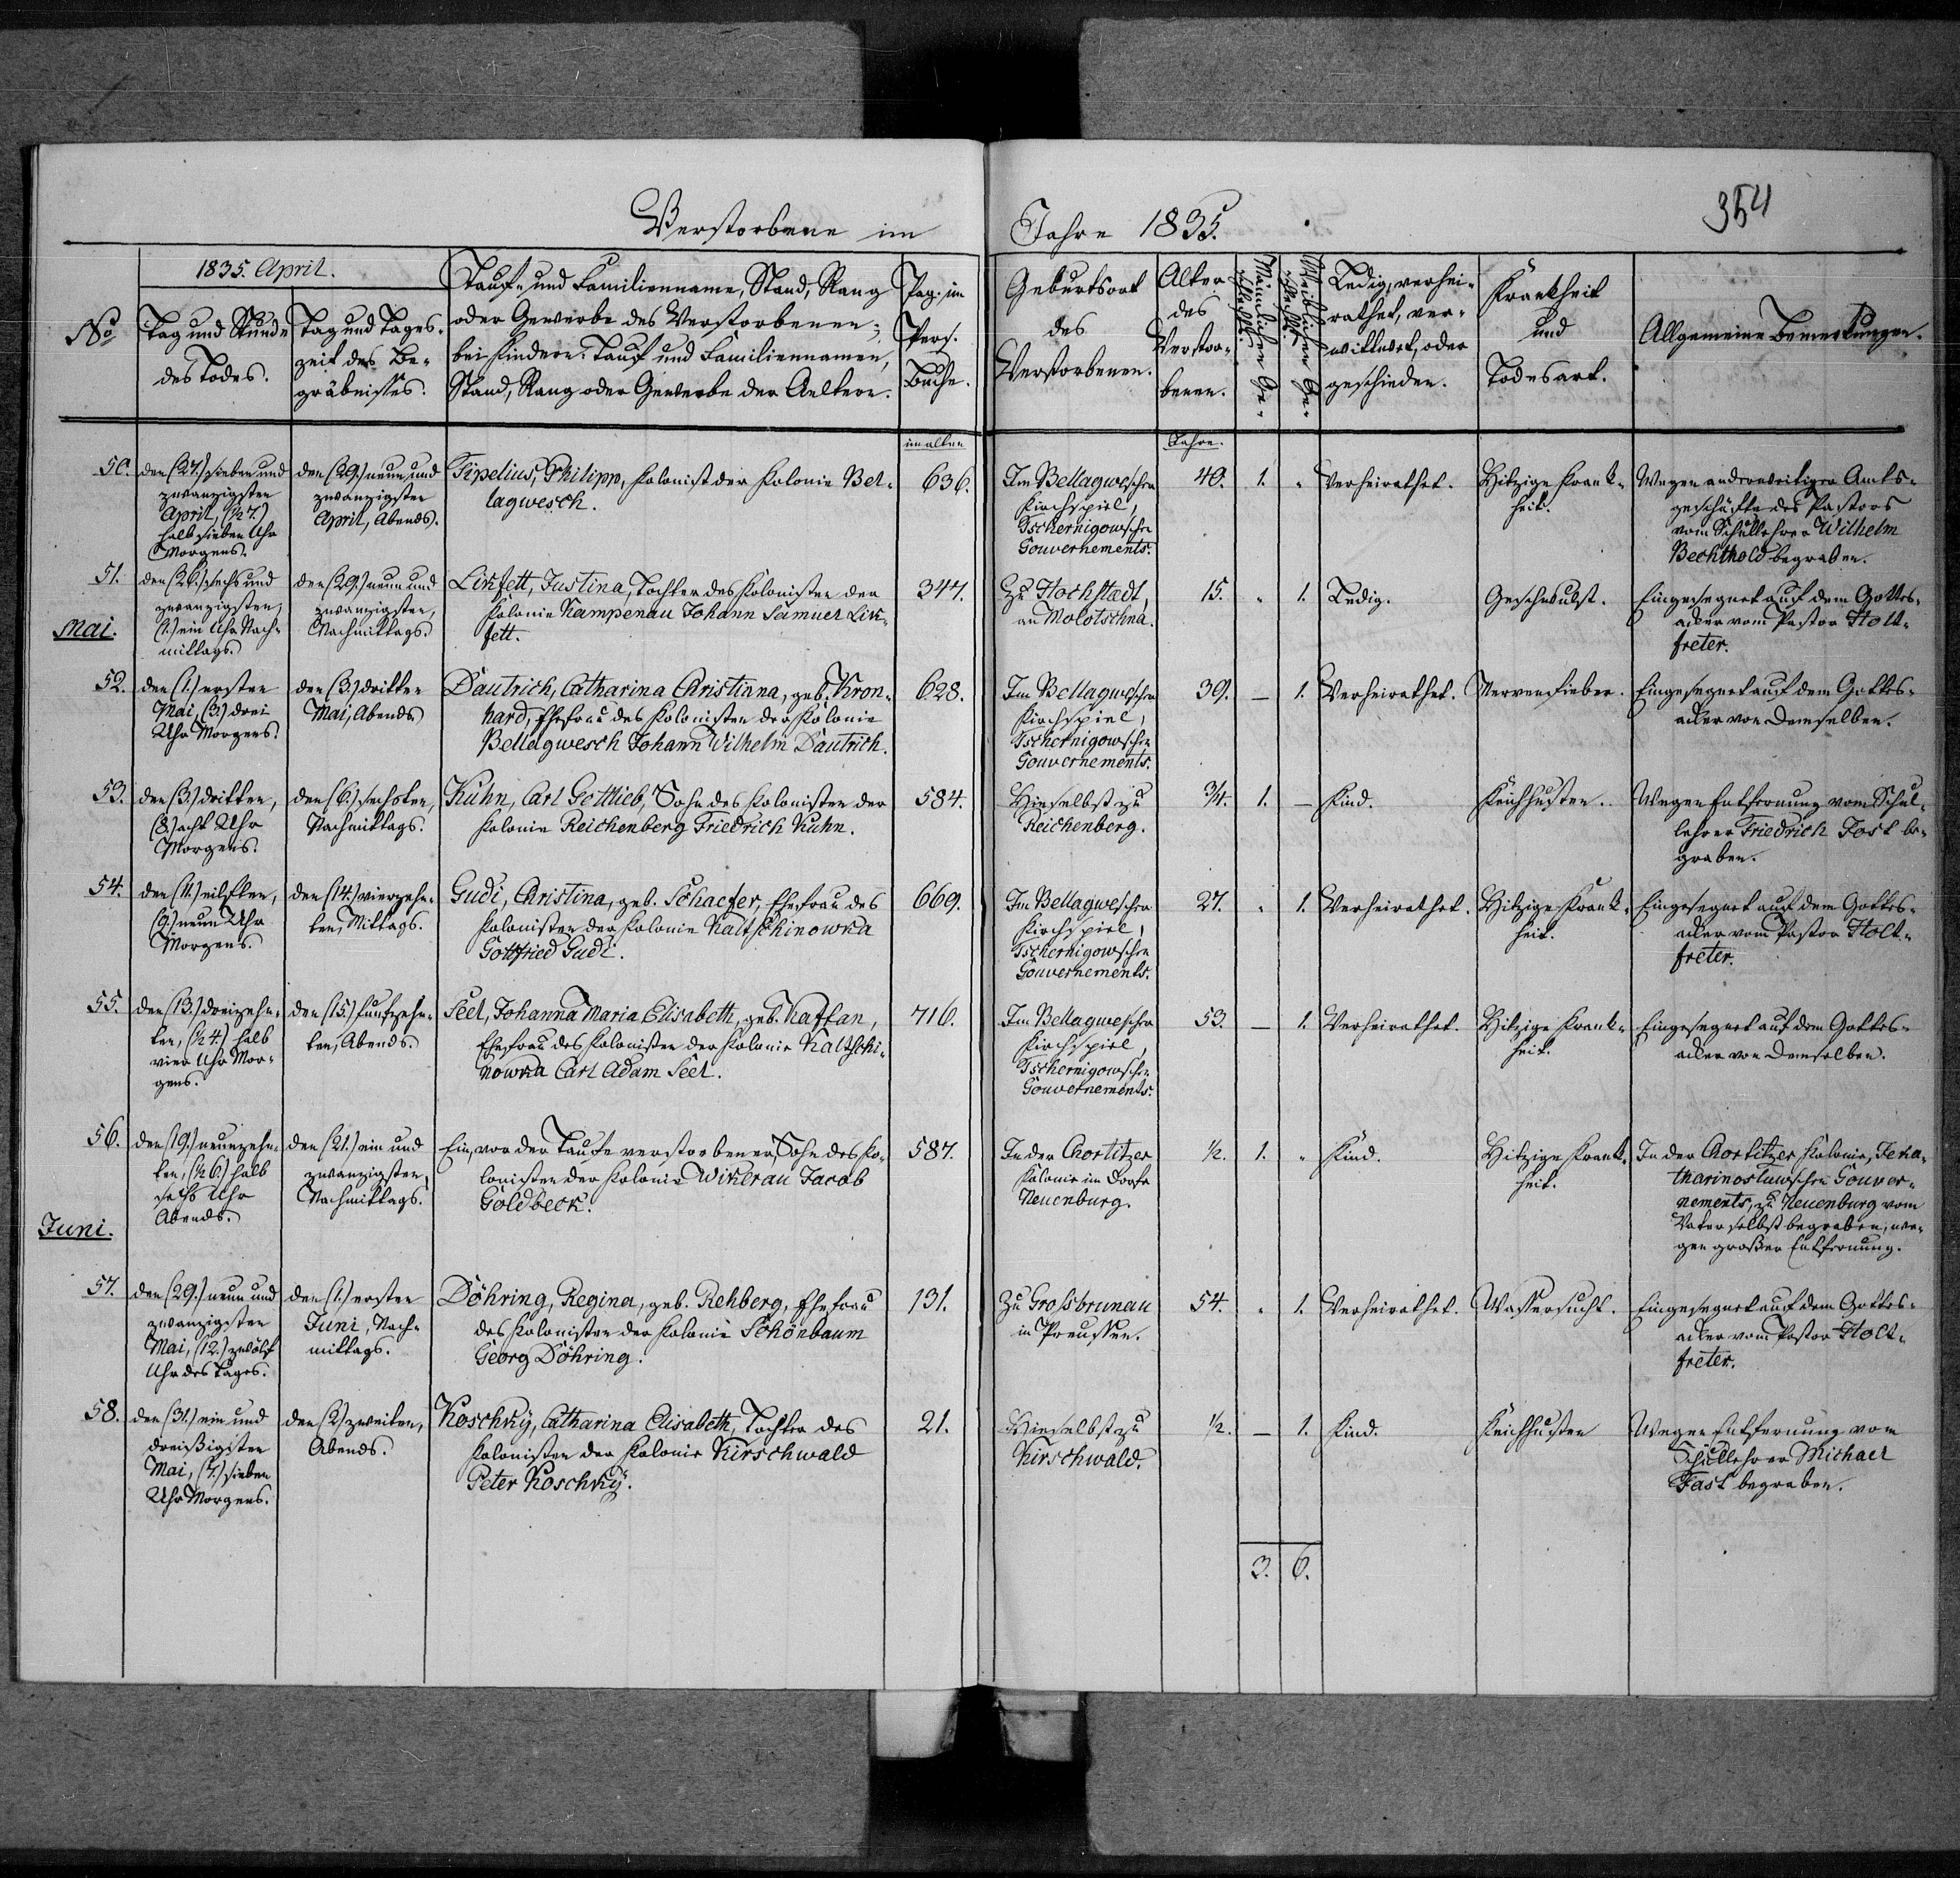 Verstorbene im Jahre 1835.
354
1835. April.
No
Tag und Stunde
des Todes.
Tag und Tages-
zeit des Be-
gräbnisses.
Tauf- und Familienname, Stand, Rang
oder Gewerbe des Verstorbenen;
bei Kindern: Tauf und Familiennamen,
Stand, Rang oder Gewerbe der Aeltern.
Pag. im
Pers.
Buche.
Geburtsort
des
Verstorbenen.
Alter
des
Verstor-
benen.
Männlichen Ge-
schlechts.
Weiblichen Ge-
schlechts.
Ledig, verhei-
rathet, ver-
wittwet, oder
geschieden.
Krankheit
und
Todesart.
Allgemeine Bemerkungen.
im alten
Jahre.
50.
den (27.) sieben und
zwanzigsten
April, (½ 7.)
halb sieben Uhr
Morgens.
den (29.) neun und
zwanzigsten
April, Abends.
Tipelius, Philipp, Kolonist der Kolonie Bel-
lagwesch.
636.
Im Bellagweschen
Kirchspiel,
Tschernigowschen
Gouvernements.
40.
1.
"
Verheirathet.
Hitzige Krank-
heit.
Wegen anderweitiger Amts-
geschäfte des Pastors
vom Schullehrer Wilhelm
Bechthold begraben.
51.
den (26.) sechs und
zwanzigsten,
(1.) ein Uhr Nach-
mittags.
den (29.) neun und
zwanzigsten,
Nachmittags.
Likfett, Justina, Tochter des Kolonisten der
Kolonie Kampenau Johann Samuel Lik-
fett.
347.
Zu Hochstadt,
an Molotschna.
15.
"
1.
Ledig.
Geschwulst.
Eingesegnet auf dem Gottes-
acker vom Pastor Holt-
freter.
Mai.
52.
den (1.) ersten
Mai, (3.) drei
Uhr Morgens.
den (3.) dritten
Mai, Abends.
Dautrich, Catharina Christinna, geb. Kron-
hard, Ehefrau des Kolonisten der Kolonie
Bellagwesch Johann Wilhelm Dautrich.
628.
Im Bellagweschen
Kirchspiel,
Tschernigowschen
Gouvernements.
39.
—
1.
Verheirathet.
Nervenfieber.
Eingesegnet auf dem Gottes-
acker von Demselben.
53.
den (3.) dritten,
(8.) acht Uhr
Morgens.
den (6.) sechsten,
Nachmittags.
Kuhn, Carl Gottlieb, Sohn des Kolonisten der
Kolonie Reichenberg Friedrich Kuhn.
584.
Hieselbst zu
Reichenberg.
¾.
1.
—
Kind.
Keichhusten.
Wegen Entfernung vom Schul-
lehrer Friedrich Fast be-
graben.
54.
den (11.) eilften,
(9.) neun Uhr
Morgens.
den (14.) vierzehn-
ten, Mittags.
Gudi, Christina, geb. Schaefer, Ehefrau des
Kolonisten der Kolonie Kaltschinowka
Gottfried Gudi.
669.
Im Bellagweschen
Kirchspiel,
Tschernigowschen
Gouvernements.
27.
"
1.
Verheirathet.
Hitzige Krank-
heit.
Eingesegnet auf dem Gottes-
acker vom Pastor Holt-
freter.
55.
den (13.) dreizehn-
ten, (½ 4.) halb
vier Uhr Mor-
gens.
den (15.) funfzehn-
ten, Abends.
Seel, Johanna Maria Elisabeth, geb. Kaffan,
Ehefrau des Kolonisten der Kolonie Kaltschi-
nowka Carl Adam Seel.
716.
Im Bellagweschen
Kirchspiel,
Tschernigowschen
Gouvernements.
53.
—
1.
Verheirathet.
Hitzige Krank-
heit.
Eingesegnet auf dem Gottes-
acker von Demselben.
56.
den (19.) neunzehn-
ten, (½ 6.) halb
sechs Uhr
Abends.
den (21.) ein und
zwanzigsten,
Nachmittags.
Ein, vor der Taufe verstorbener, Sohn des Ko-
lonisten der Kolonie Wikerau Jacob
Goldbeck.
587.
In der Chortitzer
Kolonie im Dorfe
Neuenburg.
½.
1.
"
Kind.
Hitzige Krank-
heit.
In der Chortitzer Kolonie, Jeka-
tharinoslawschen Gouver-
nements, zu Neuenburg vom
Vater selbst begraben, we-
gen großer Entfernung.
Juni.
57.
den (29.) neun und
zwanzigsten
Mai, (12.) zwölf
Uhr des Tages.
den (1.) ersten
Juni, Nach-
mittags.
Döhring, Regina, geb. Rehberg, Ehefrau
des Kolonisten der Kolonie Schönbaum
Georg Döhring.
131.
Zu Grosbrunau
in Preussen.
54.
"
1.
Verheirathet.
Wassersucht.
Eingesegnet auf dem Gottes-
acker vom Pastor Holt-
freter.
58.
den (31.) ein und
dreißigsten
Mai, (7.) sieben
Uhr Morgens.
den (2.) zweiten,
Abends.
Koschky, Catharina Elisabeth, Tochter des
Kolonisten der Kolonie Kirschwald
Peter Koschky.
21.
Hieselbst zu
Kirschwald.
½.
—
1.
Kind.
Keichhusten
Wegen Entfernung vom
Schullehrer Michael
Fast begraben.
3.
6.